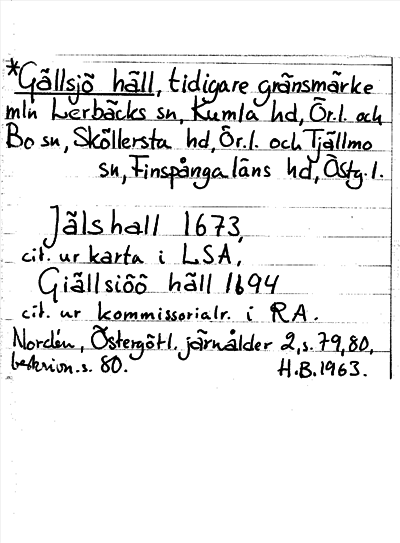 *Gällsjö häll, tidigare gränsmärke
mln Lerbäcks sn, Kumla hd, Ör.l. och
Bo sn, Sköllersta hd, Ör.l. och Tjällmo
sn, Finspånga läns hd, Östg.l.
Jälshall 1673,
cit. ur karta i LSA,
Giällsiöö häll 1694
cit. ur kommissorialr. i RA.
Nordén, Östergötl. järnålder 2, s. 79, 80,
beskrivn. s. 80.
H.B. 1963.